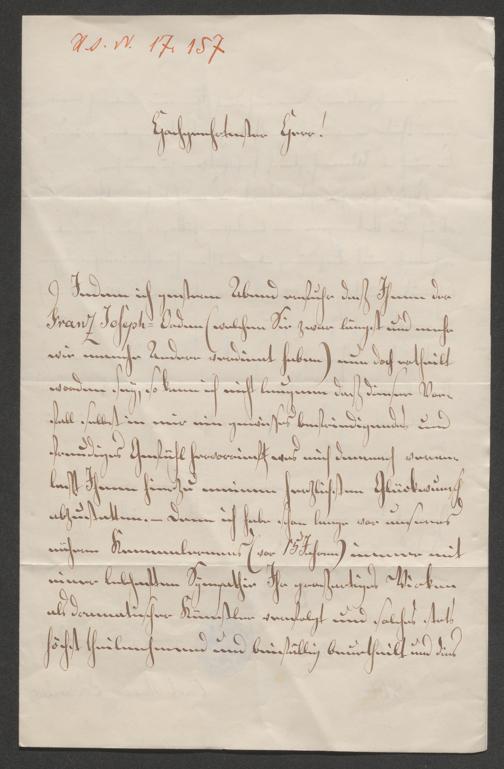 H.I.N. 17.157
Hochgeehrtester Herr!
Indem ich gestern Abend erfuhr daß Ihnen der
Franz Joseph-Orden (welchen Sie zwar längst und mehr
wie mancher Andere verdient haben) nun doch ertheilt
worden sey, so kann ich nicht leugnen daß dieser Vor-
fall selbst in mir ein gewisses befriedigendes und
freudiges Gefühl hervorrief was mich demnach veran-
laßt Ihnen hiezu meinen herzlichsten Glückwunsch
abzustatten. – Denn ich habe schon lange vor unserem
nähern Kennenlernen (vor 15 Jahren) immer mit
einer lebhaften Sympathie Ihr großartiges Wirken
als dramatischer Künstler verfolgt und solches stets
höchst theilnehmend und beifällig beurtheilt und dies